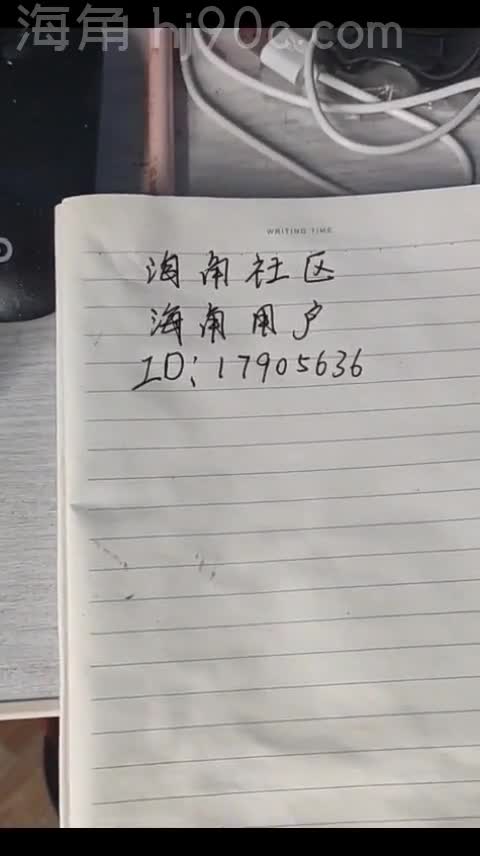 海角 hj90c.com
WRITING TIME
海角社区
海角用户
ID: 17905636